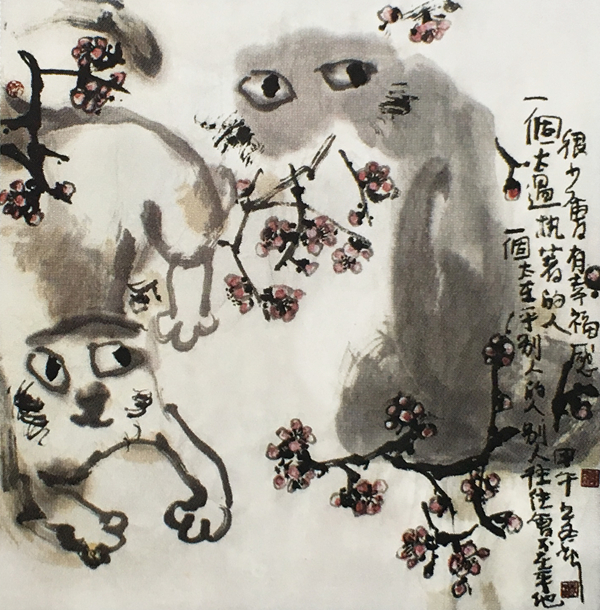 一個太在乎別人的人別人往往會不在乎他
一個太過执著的人
很少會有幸福感
甲午